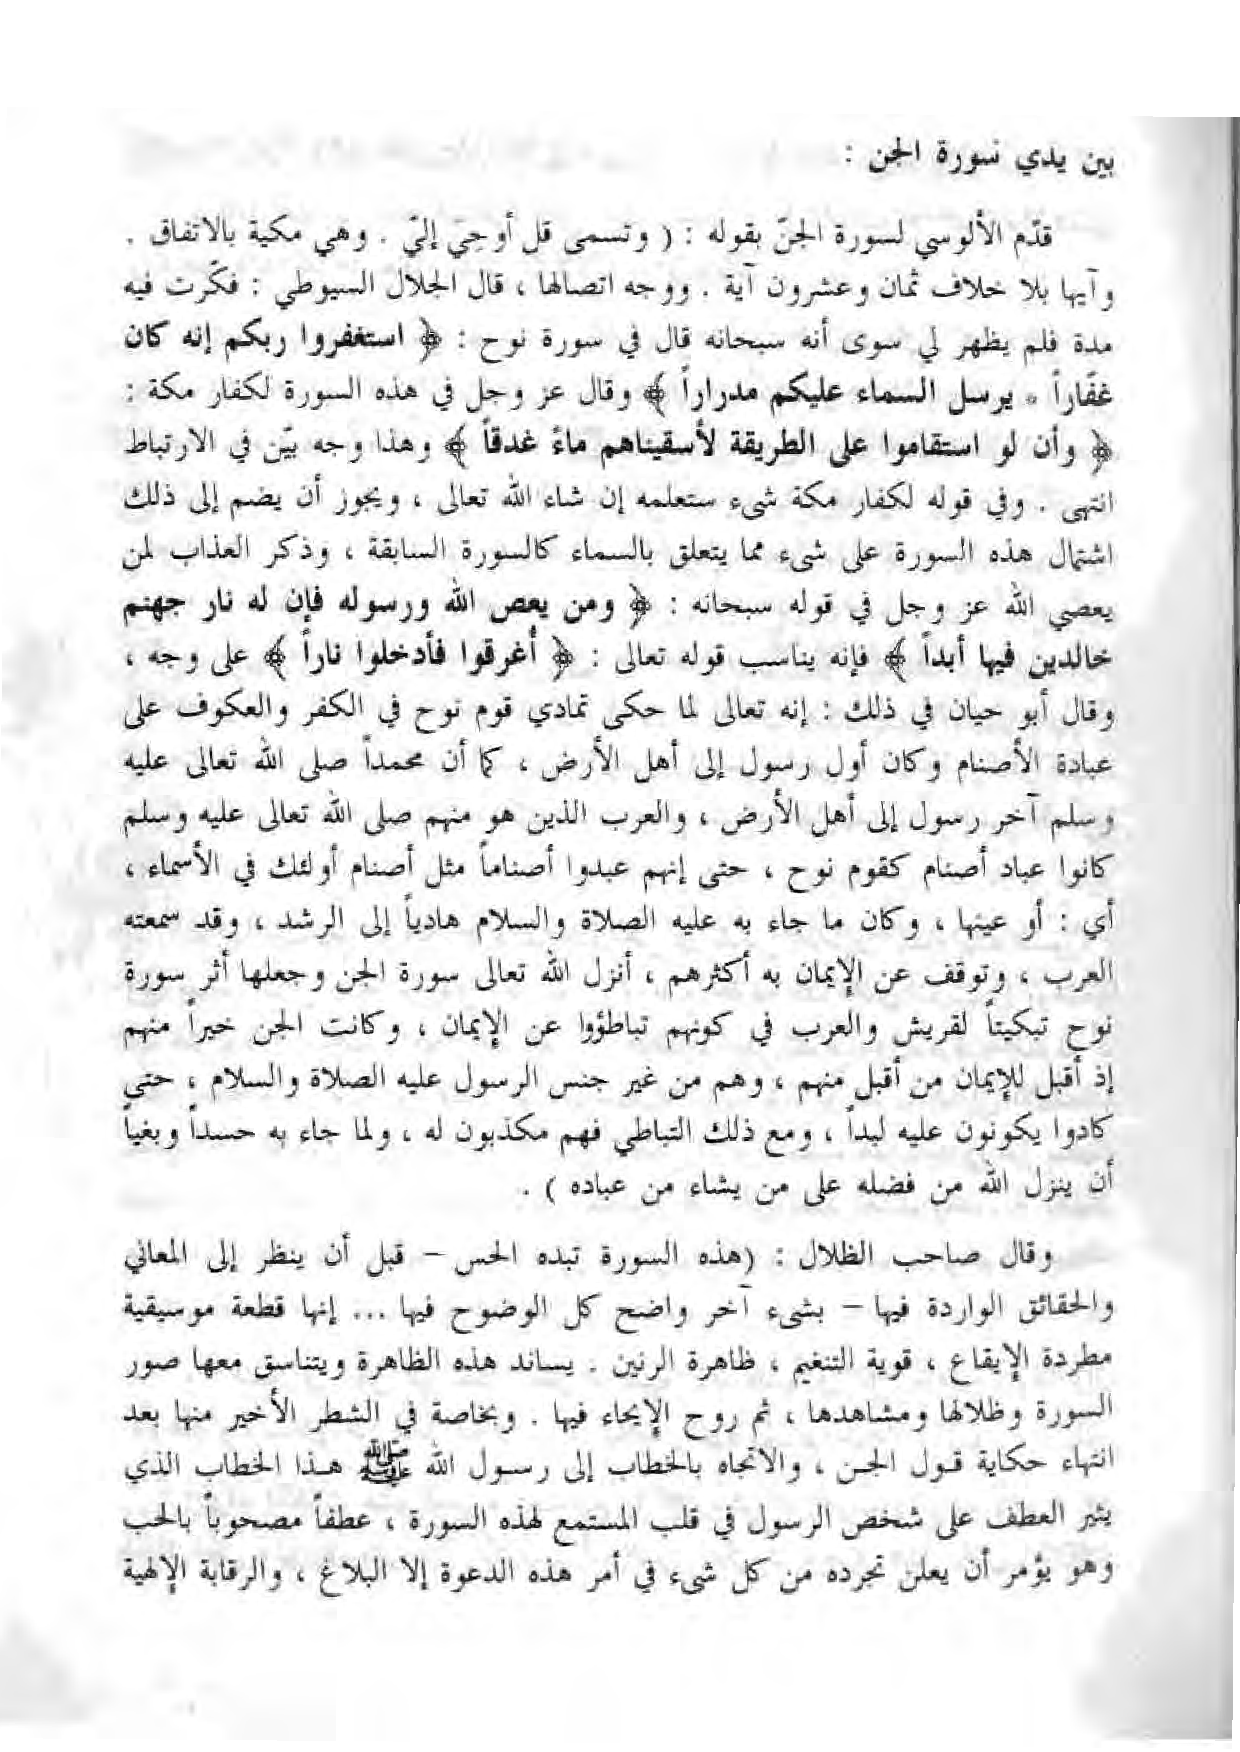 بين يدي سورة الجن :
قدّم الألوسي لسورة الجنّ بقوله : ( وتسمى قل أوحِيَ إليّ . وهي مكية بالاتفاق .
وآيها بلا خلاف ثمان وعشرون آية . ووجه اتصالها ، قال الجلال السيوطي : فكّرت فيه
مدة فلم يظهر لي سوى أنه سبحانه قال في سورة نوح : ﴿ استغفروا ربكم إنه كان
غفّاراً * يرسل السماء عليكم مدراراً ﴾ وقال عز وجل في هذه السورة لكفار مكة :
﴿ وأن لو استقاموا على الطريقة لأسقيناهم ماءً غدقاً ﴾ وهذا وجه بيّن في الارتباط
انتهى . وفي قوله لكفار مكة شيء ستعلمه إن شاء الله تعالى ، ويجوز أن يضم إلى ذلك
اشتمال هذه السورة على شيء مما يتعلق بالسماء كالسورة السابقة ، وذكر العذاب لمن
يعصي الله عز وجل في قوله سبحانه : ﴿ ومن يعص الله ورسوله فإن له نار جهنم
خالدين فيها أبداً ﴾ فإنه يناسب قوله تعالى : ﴿ أُغرقوا فأدخلوا ناراً ﴾ على وجه ،
وقال أبو حيان في ذلك : إنه تعالى لما حكى تمادي قوم نوح في الكفر والعكوف على
عبادة الأصنام وكان أول رسول إلى أهل الأرض ، كما أن محمداً صلى الله تعالى عليه
وسلم آخر رسول إلى أهل الأرض ، والعرب الذين هو منهم صلى الله تعالى عليه وسلم
كانوا عباد أصنام كقوم نوح ، حتى إنهم عبدوا أصناماً مثل أصنام أولئك في الأسماء ،
أي : أو عينها ، وكان ما جاء به عليه الصلاة والسلام هادياً إلى الرشد ، وقد سمعته
العرب ، وتوقف عن الإيمان به أكثرهم ، أنزل الله تعالى سورة الجن وجعلها أثر سورة
نوح تبكيتاً لقريش والعرب في كونهم تباطؤوا عن الإيمان ، وكانت الجن خيراً منهم
إذ أقبل للإيمان من أقبل منهم ، وهم من غير جنس الرسول عليه الصلاة والسلام ، حتى
كادوا يكونون عليه لبداً ، ومع ذلك التباطي فهم مكذبون له ، ولما جاء به حسداً وبغياً
أن ينزل الله من فضله على من يشاء من عباده ) .
وقال صاحب الظلال : (هذه السورة تبده الحس – قبل أن ينظر إلى المعاني
والحقائق الواردة فيها – بشيء آخر واضح كل الوضوح فيها ... إنها قطعة موسيقية
مطردة الإيقاع ، قوية التنغيم ، ظاهرة الرنين . يساند هذه الظاهرة ويتناسق معها صور
السورة وظلالها ومشاهدها ، ثم روح الإيحاء فيها . وبخاصة في الشطر الأخير منها بعد
انتهاء حكاية قول الجن ، والاتجاه بالخطاب إلى رسول الله ﷺ هذا الخطاب الذي
يثير العطف على شخص الرسول في قلب المستمع لهذه السورة ، عطفاً مصحوباً بالحب
وهو يؤمر أن يعلن تجرده من كل شيء في أمر هذه الدعوة إلا البلاغ ، والرقابة الإلهية